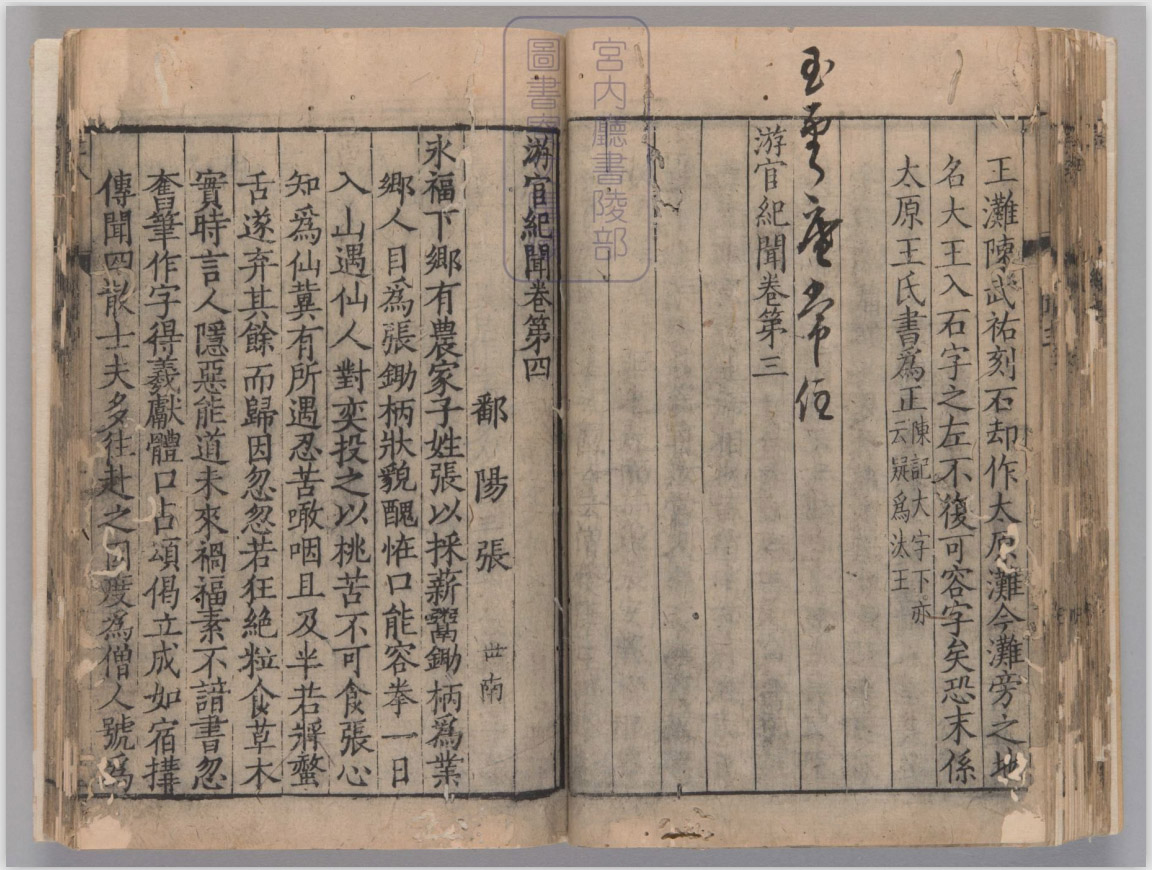 王灘陳武祐刻石却作太原灘今灘旁之地
名大王入石字之左不復可容字矣恐未係
太原王氏書為正陳記大字下亦
云疑為汰王
游宦紀聞卷第三
常住
宮内廳書陵部
圖書
游宦紀聞卷第四
鄱陽張世南
永福下鄉有農家子姓張以採薪鬻鋤柄為業
鄉人目為張鋤柄狀貌醜怪口能容拳一日
入山遇仙人對奕投之以桃苦不可食張心
知為仙冀有所遇忍苦噉咽且及半若將螫
舌遂弃其餘而歸因忽忽若狂絶粒食草木
實時言人隱惡能道未來禍福素不諳書忽
奮筆作字得羲獻體口占頌偈立成如宿搆
傳聞四散士夫多往赴之因度為僧人號為